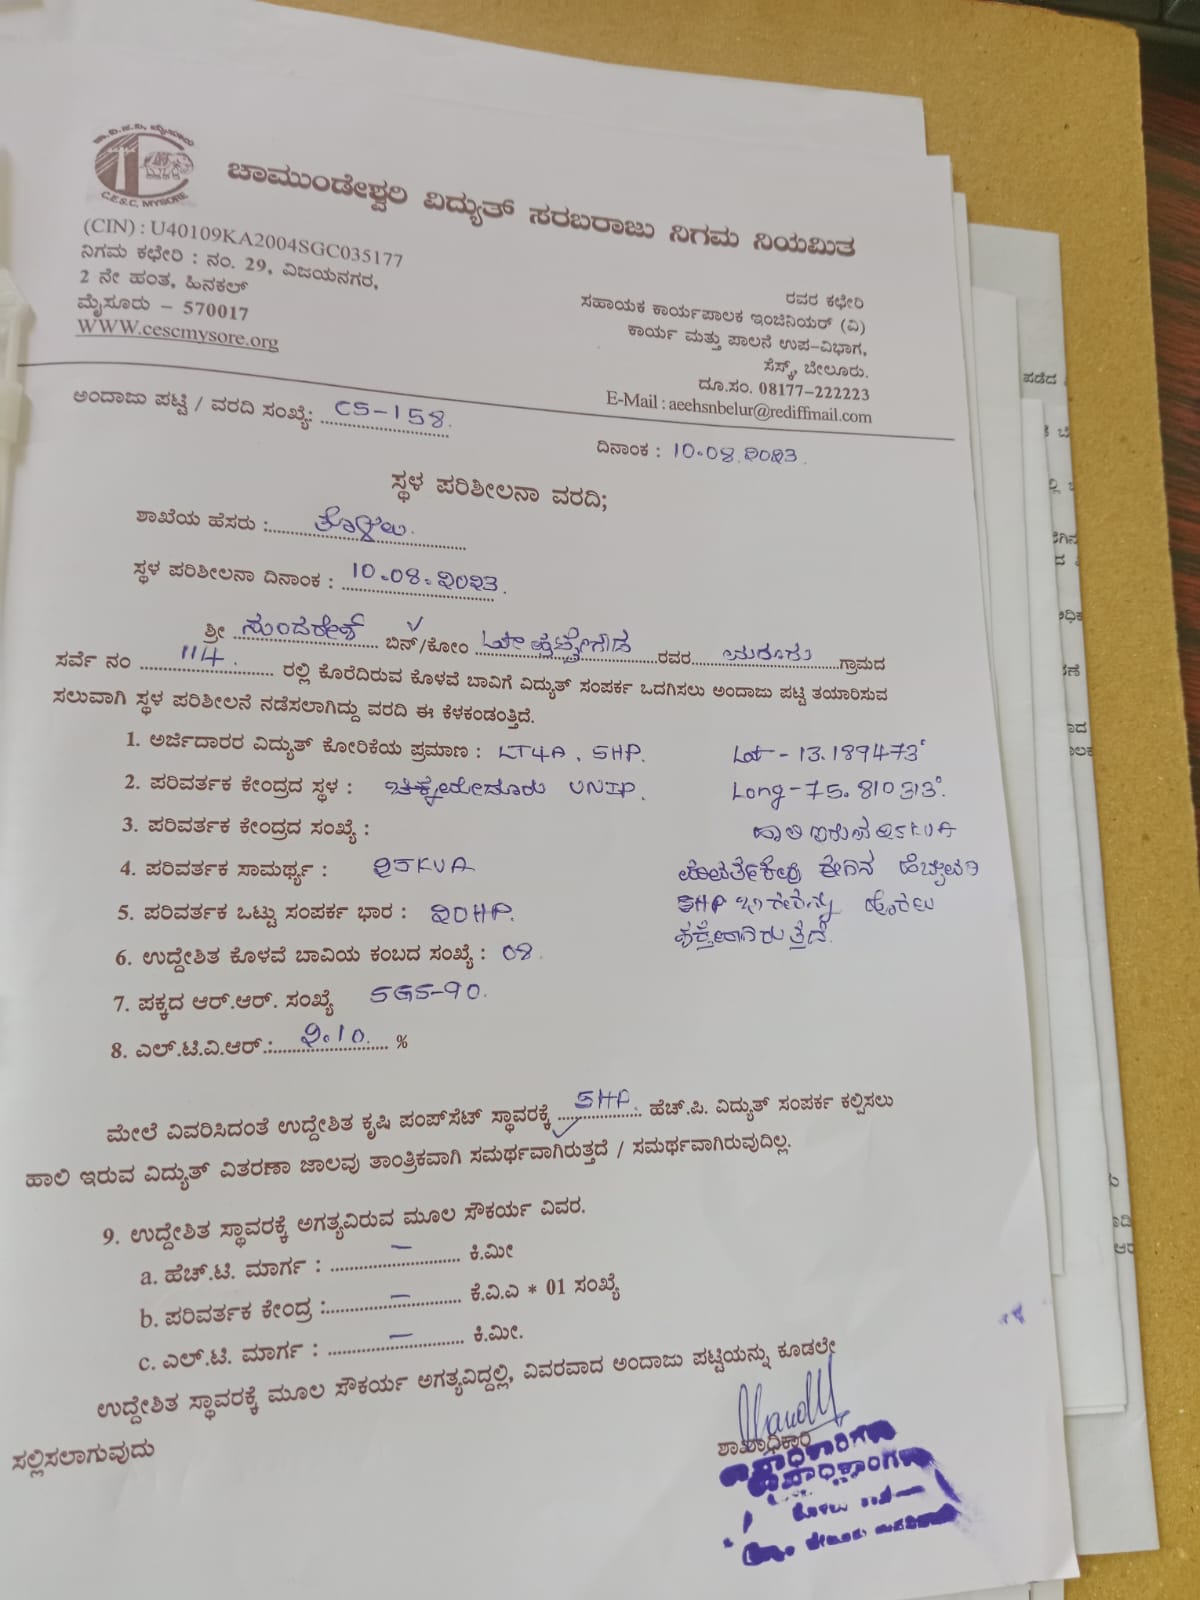 ಚಾ.ವಿ.ಸ.ನಿ, ಮೈಸೂರು
C.E.S.C, MYSORE
ಚಾಮುಂಡೇಶ್ವರಿ ವಿದ್ಯುತ್ ಸರಬರಾಜು ನಿಗಮ ನಿಯಮಿತ
(CIN) : U40109KA2004SGC035177
ನಿಗಮ ಕಛೇರಿ : ನಂ. 29, ವಿಜಯನಗರ,
2 ನೇ ಹಂತ, ಹಿನಕಲ್
ಮೈಸೂರು – 570017
WWW.cescmysore.org
ರವರ ಕಛೇರಿ
ಸಹಾಯಕ ಕಾರ್ಯಪಾಲಕ ಇಂಜಿನಿಯರ್ (ವಿ)
ಕಾರ್ಯ ಮತ್ತು ಪಾಲನೆ ಉಪ-ವಿಭಾಗ,
ಸೆಸ್ಕ್, ಬೇಲೂರು.
ದೂ.ಸಂ. 08177-222223
E-Mail : aeehsnbelur@rediffmail.com
ಅಂದಾಜು ಪಟ್ಟಿ / ವರದಿ ಸಂಖ್ಯೆ: CS-158.
ದಿನಾಂಕ : 10.08.೨೦೨೩.
ಸ್ಥಳ ಪರಿಶೀಲನಾ ವರದಿ;
ಶಾಖೆಯ ಹೆಸರು :
ಸ್ಥಳ ಪರಿಶೀಲನಾ ದಿನಾಂಕ : 10.08.೨೦೨೩.
ಶ್ರೀ ಸುಂದರೇಶ್ ಬಿನ್/ಕೋಂ ರವರ ಗ್ರಾಮದ
ಸರ್ವೆ ನಂ 114. ರಲ್ಲಿ ಕೊರೆದಿರುವ ಕೊಳವೆ ಬಾವಿಗೆ ವಿದ್ಯುತ್ ಸಂಪರ್ಕ ಒದಗಿಸಲು ಅಂದಾಜು ಪಟ್ಟಿ ತಯಾರಿಸುವ
ಸಲುವಾಗಿ ಸ್ಥಳ ಪರಿಶೀಲನೆ ನಡೆಸಲಾಗಿದ್ದು ವರದಿ ಈ ಕೆಳಕಂಡಂತ್ತಿದೆ.
1. ಅರ್ಜಿದಾರರ ವಿದ್ಯುತ್ ಕೋರಿಕೆಯ ಪ್ರಮಾಣ : LT4A, 5HP. Lat - 13.189473°
2. ಪರಿವರ್ತಕ ಕೇಂದ್ರದ ಸ್ಥಳ : UNIP. Long - 75.810313°.
3. ಪರಿವರ್ತಕ ಕೇಂದ್ರದ ಸಂಖ್ಯೆ : ಹಾಲಿ ಇರುವ ೨5KVA
4. ಪರಿವರ್ತಕ ಸಾಮರ್ಥ್ಯ : ೨5KVA ಈಗಿನ ಹೆಚ್ಚುವರಿ
5. ಪರಿವರ್ತಕ ಒಟ್ಟು ಸಂಪರ್ಕ ಭಾರ : ೨0HP. 5HP
6. ಉದ್ದೇಶಿತ ಕೊಳವೆ ಬಾವಿಯ ಕಂಬದ ಸಂಖ್ಯೆ : 08.
7. ಪಕ್ಕದ ಆರ್.ಆರ್. ಸಂಖ್ಯೆ SGS-90.
8. ಎಲ್.ಟಿ.ವಿ.ಆರ್.: ೨.10. %
ಮೇಲೆ ವಿವರಿಸಿದಂತೆ ಉದ್ದೇಶಿತ ಕೃಷಿ ಪಂಪ್‌ಸೆಟ್ ಸ್ಥಾವರಕ್ಕೆ 5HP. ಹೆಚ್.ಪಿ. ವಿದ್ಯುತ್ ಸಂಪರ್ಕ ಕಲ್ಪಿಸಲು
ಹಾಲಿ ಇರುವ ವಿದ್ಯುತ್ ವಿತರಣಾ ಜಾಲವು ತಾಂತ್ರಿಕವಾಗಿ ಸಮರ್ಥವಾಗಿರುತ್ತದೆ / ಸಮರ್ಥವಾಗಿರುವುದಿಲ್ಲ.
9. ಉದ್ದೇಶಿತ ಸ್ಥಾವರಕ್ಕೆ ಅಗತ್ಯವಿರುವ ಮೂಲ ಸೌಕರ್ಯ ವಿವರ.
a. ಹೆಚ್.ಟಿ. ಮಾರ್ಗ : – ಕಿ.ಮೀ
b. ಪರಿವರ್ತಕ ಕೇಂದ್ರ : – ಕೆ.ವಿ.ಎ * 01 ಸಂಖ್ಯೆ
c. ಎಲ್.ಟಿ. ಮಾರ್ಗ : – ಕಿ.ಮೀ.
ಉದ್ದೇಶಿತ ಸ್ಥಾವರಕ್ಕೆ ಮೂಲ ಸೌಕರ್ಯ ಅಗತ್ಯವಿದ್ದಲ್ಲಿ, ವಿವರವಾದ ಅಂದಾಜು ಪಟ್ಟಿಯನ್ನು ಕೂಡಲೇ
ಸಲ್ಲಿಸಲಾಗುವುದು
ಶಾಖಾಧಿಕಾರಿ